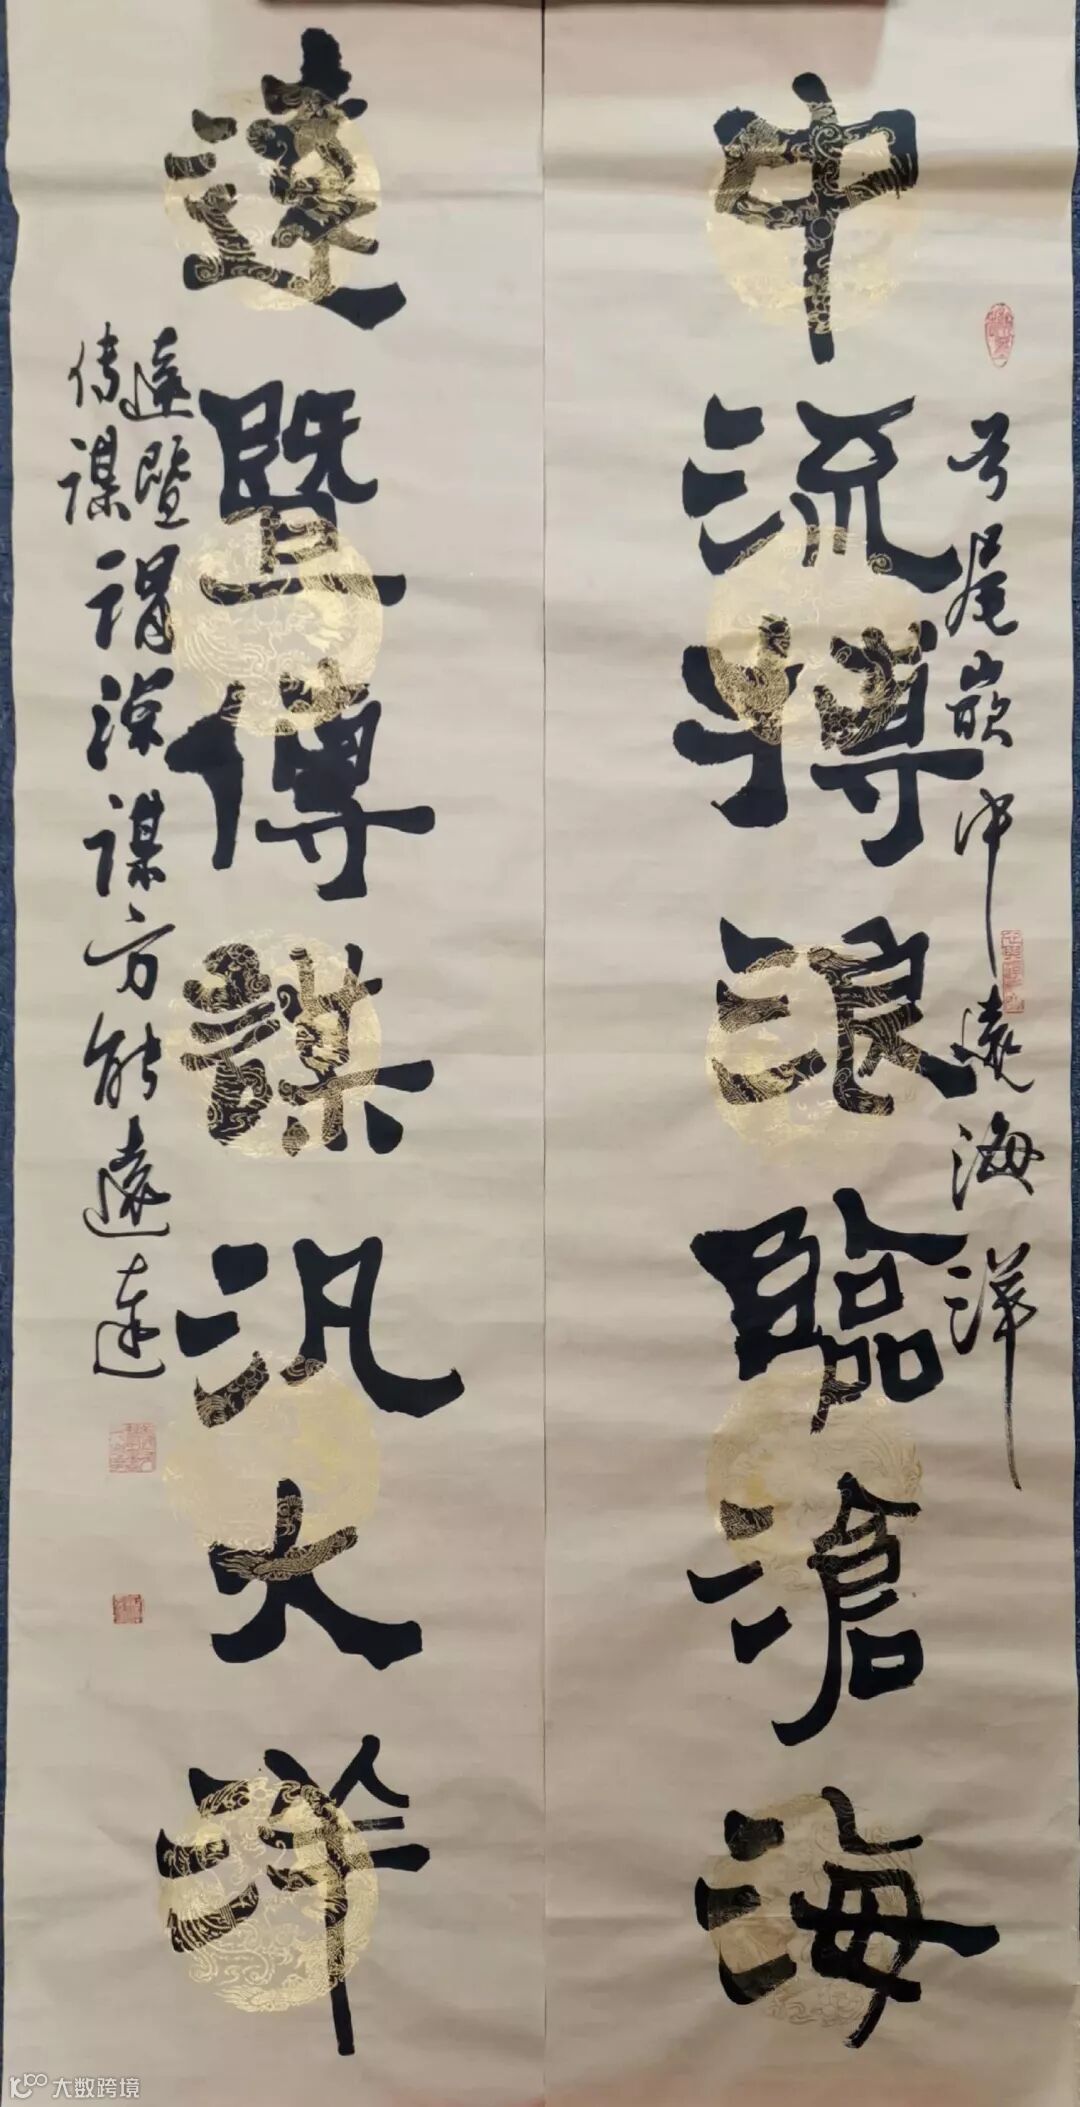 中流搏浪臨滄海
首尾嵌中遠海洋
遠暨傳謀汎大洋
遠暨
传谋
谓深谋方能遠
大数跨境